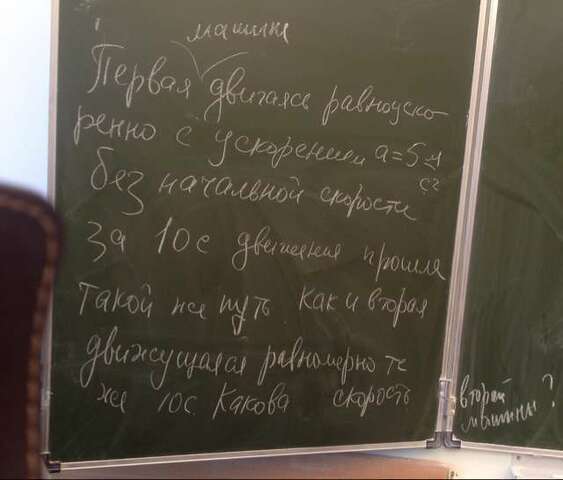 машина
Первая двигаясь равноуско-
ренно с ускорением a=5 м/с²
без начальной скорости
за 10с движения прошла
такой же путь как и вторая
движущаяся равномерно те
же 10с. Какова скорость
второй
машины?